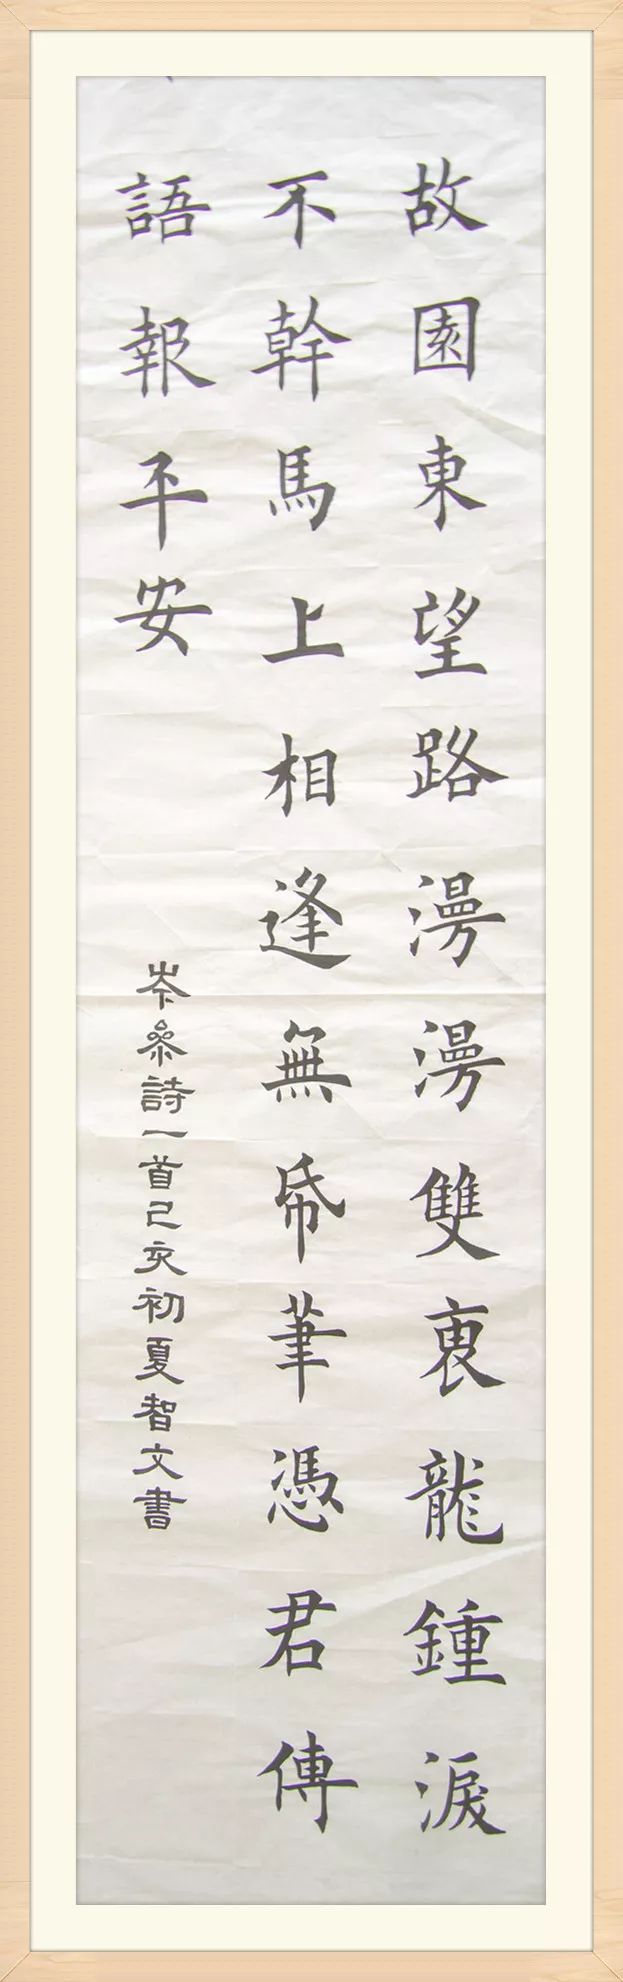 故園東望路漫漫雙衷龍鍾淚
不幹馬上相逢無帋筆憑君傳
語報平安
岑參詩一首己亥初夏智文書